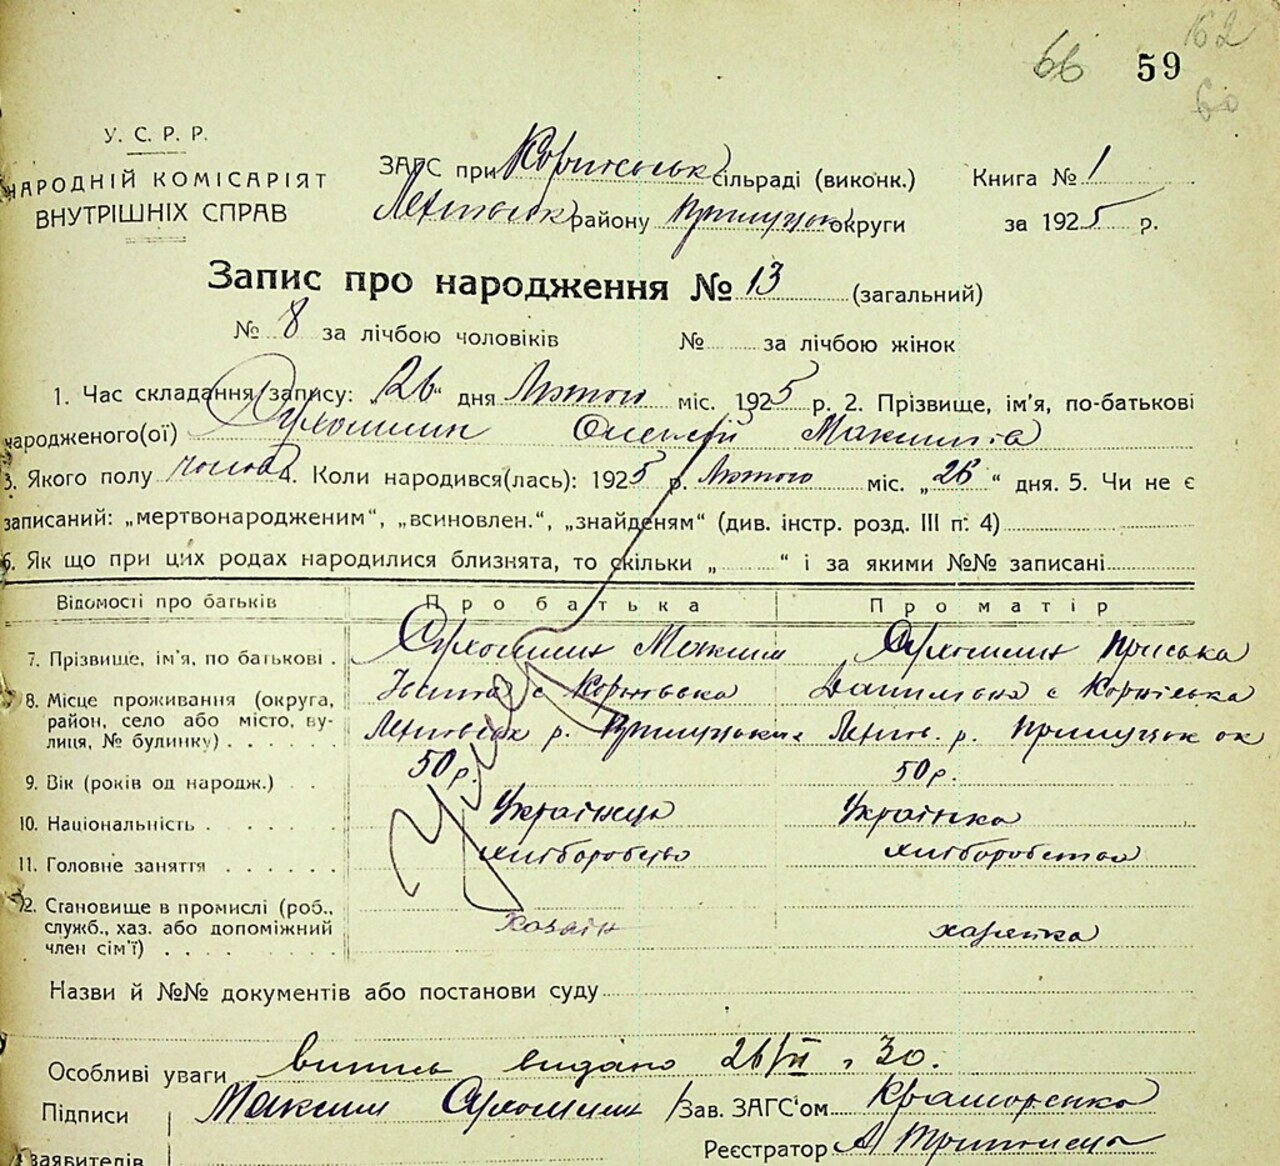 62
66 59
60
У. С. Р. Р.
НАРОДНІЙ КОМІСАРІЯТ
ВНУТРІШНІХ СПРАВ
ЗАГС при сільраді (виконк.) Книга № 1
району Прилуцьк округи за 1925 р.
Запис про народження № 13 (загальний)
№ 8 за лічбою чоловіків № за лічбою жінок
1. Час складання запису: „26“ дня Лютого міс. 1925 р. 2. Прізвище, ім'я, по-батькові
народженого(ої) Сухомлин Олексій Максимів
3. Якого полу чолов 4. Коли народився(лась): 1925 р. Лютого міс. „26“ дня. 5. Чи не є
записаний: „мертвонародженим“, „всиновлен.“, „знайденям“ (див. інстр. розд. III п. 4)
6. Як що при цих родах народилися близнята, то скільки „ “ і за якими №№ записані
Відомості про батьків Про батька Про матір
7. Прізвище, ім'я, по батькові . Сухомлин Максим Сухомлин Приська
8. Місце проживання (округа, с Данильовна с
район, село або місто, ву-
лиця, № будинку) . . . . . . р. р. Прилуцьк ок
9. Вік (років од народж.) . . 50 р. 50 р.
10. Національність . . . . . Українець Українка
11. Головне заняття . . . . . . хліборобство хліборобство
12. Становище в промислі (роб.,
служб., хаз. або допоміжний хазяін хазяйка
член сім'ї) . . . . . . .
Умер
Назви й №№ документів або постанови суду
Особливі уваги випись видано 26/II 30.
Підписи Максим Сухомлин Зав. ЗАГС'ом Краморенко
заявителів Реєстратор А